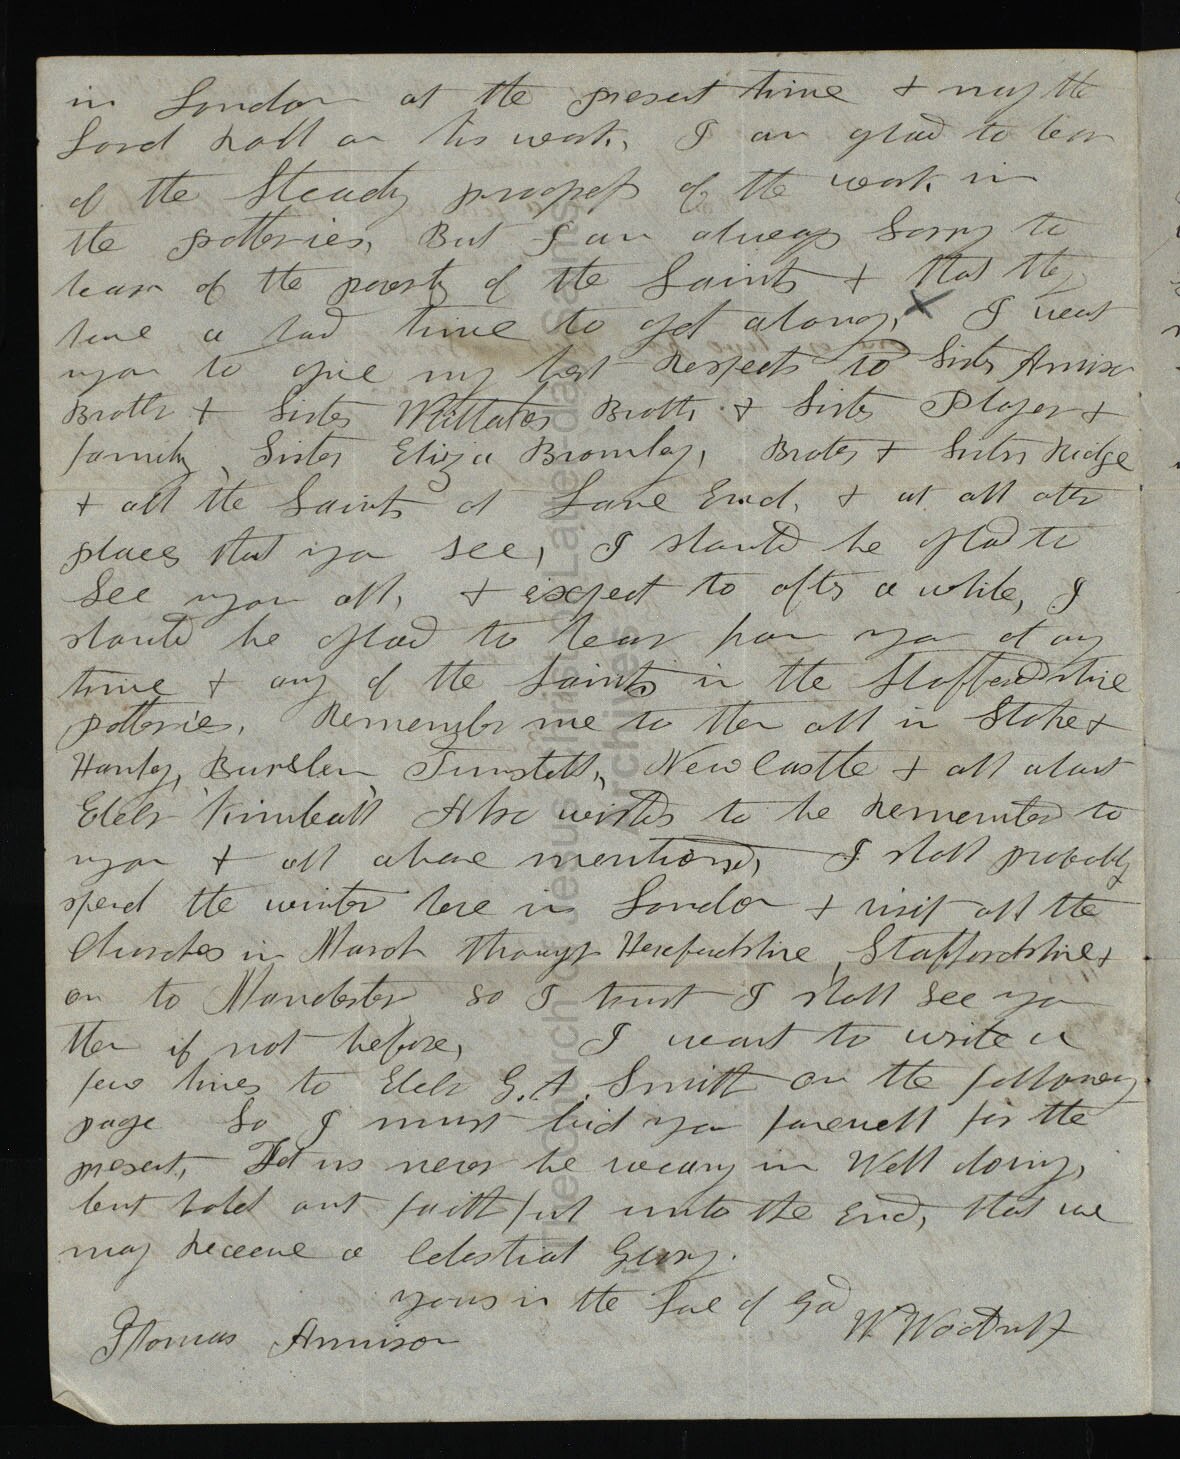 in London at the present time & may the
Lord roll on his work, I am glad to hear
of the Steady progress of the work in
the potteries, But I am always Sorry to
hear of the poverty of the Saints & that they
have a had time to get along, X I want
you to give my best Respects to Sister Amison
Brother & Sister Whittaker Brother & Sister Player &
family, Sister Eliza Bromley, Brother & Sister Ridge
& all the Saints at Lane End, & at all other
places that you see, I should be glad to
See you all, & expect to after a while, I
should be glad to hear from you at any
time & any of the Saints in the Staffordshire
potteries. Remember me to them all in Stoke &
Hanley, Burslem Tunstall, New Castle & all about
Elder Kimball Also wishes to be Remembered to
you & all above mentioned, I shall probably
spend the winter here in London & visit all the
Churches in March through Herefordshire, Staffordshire &
on to Manchester so I trust I shall see you
then if not before, I want to write a
few lines to Elder G. A. Smith on the following
page So I must bid you farewell for the
present, Let us never be weary in Well doing,
but hold out faithful unto the End, that we
may Receive a Celestial Glory.
yours in the Love of God
W. Woodruff
Thomas Amison
Church of Jesus Christ of Latter-day Saints
Archives